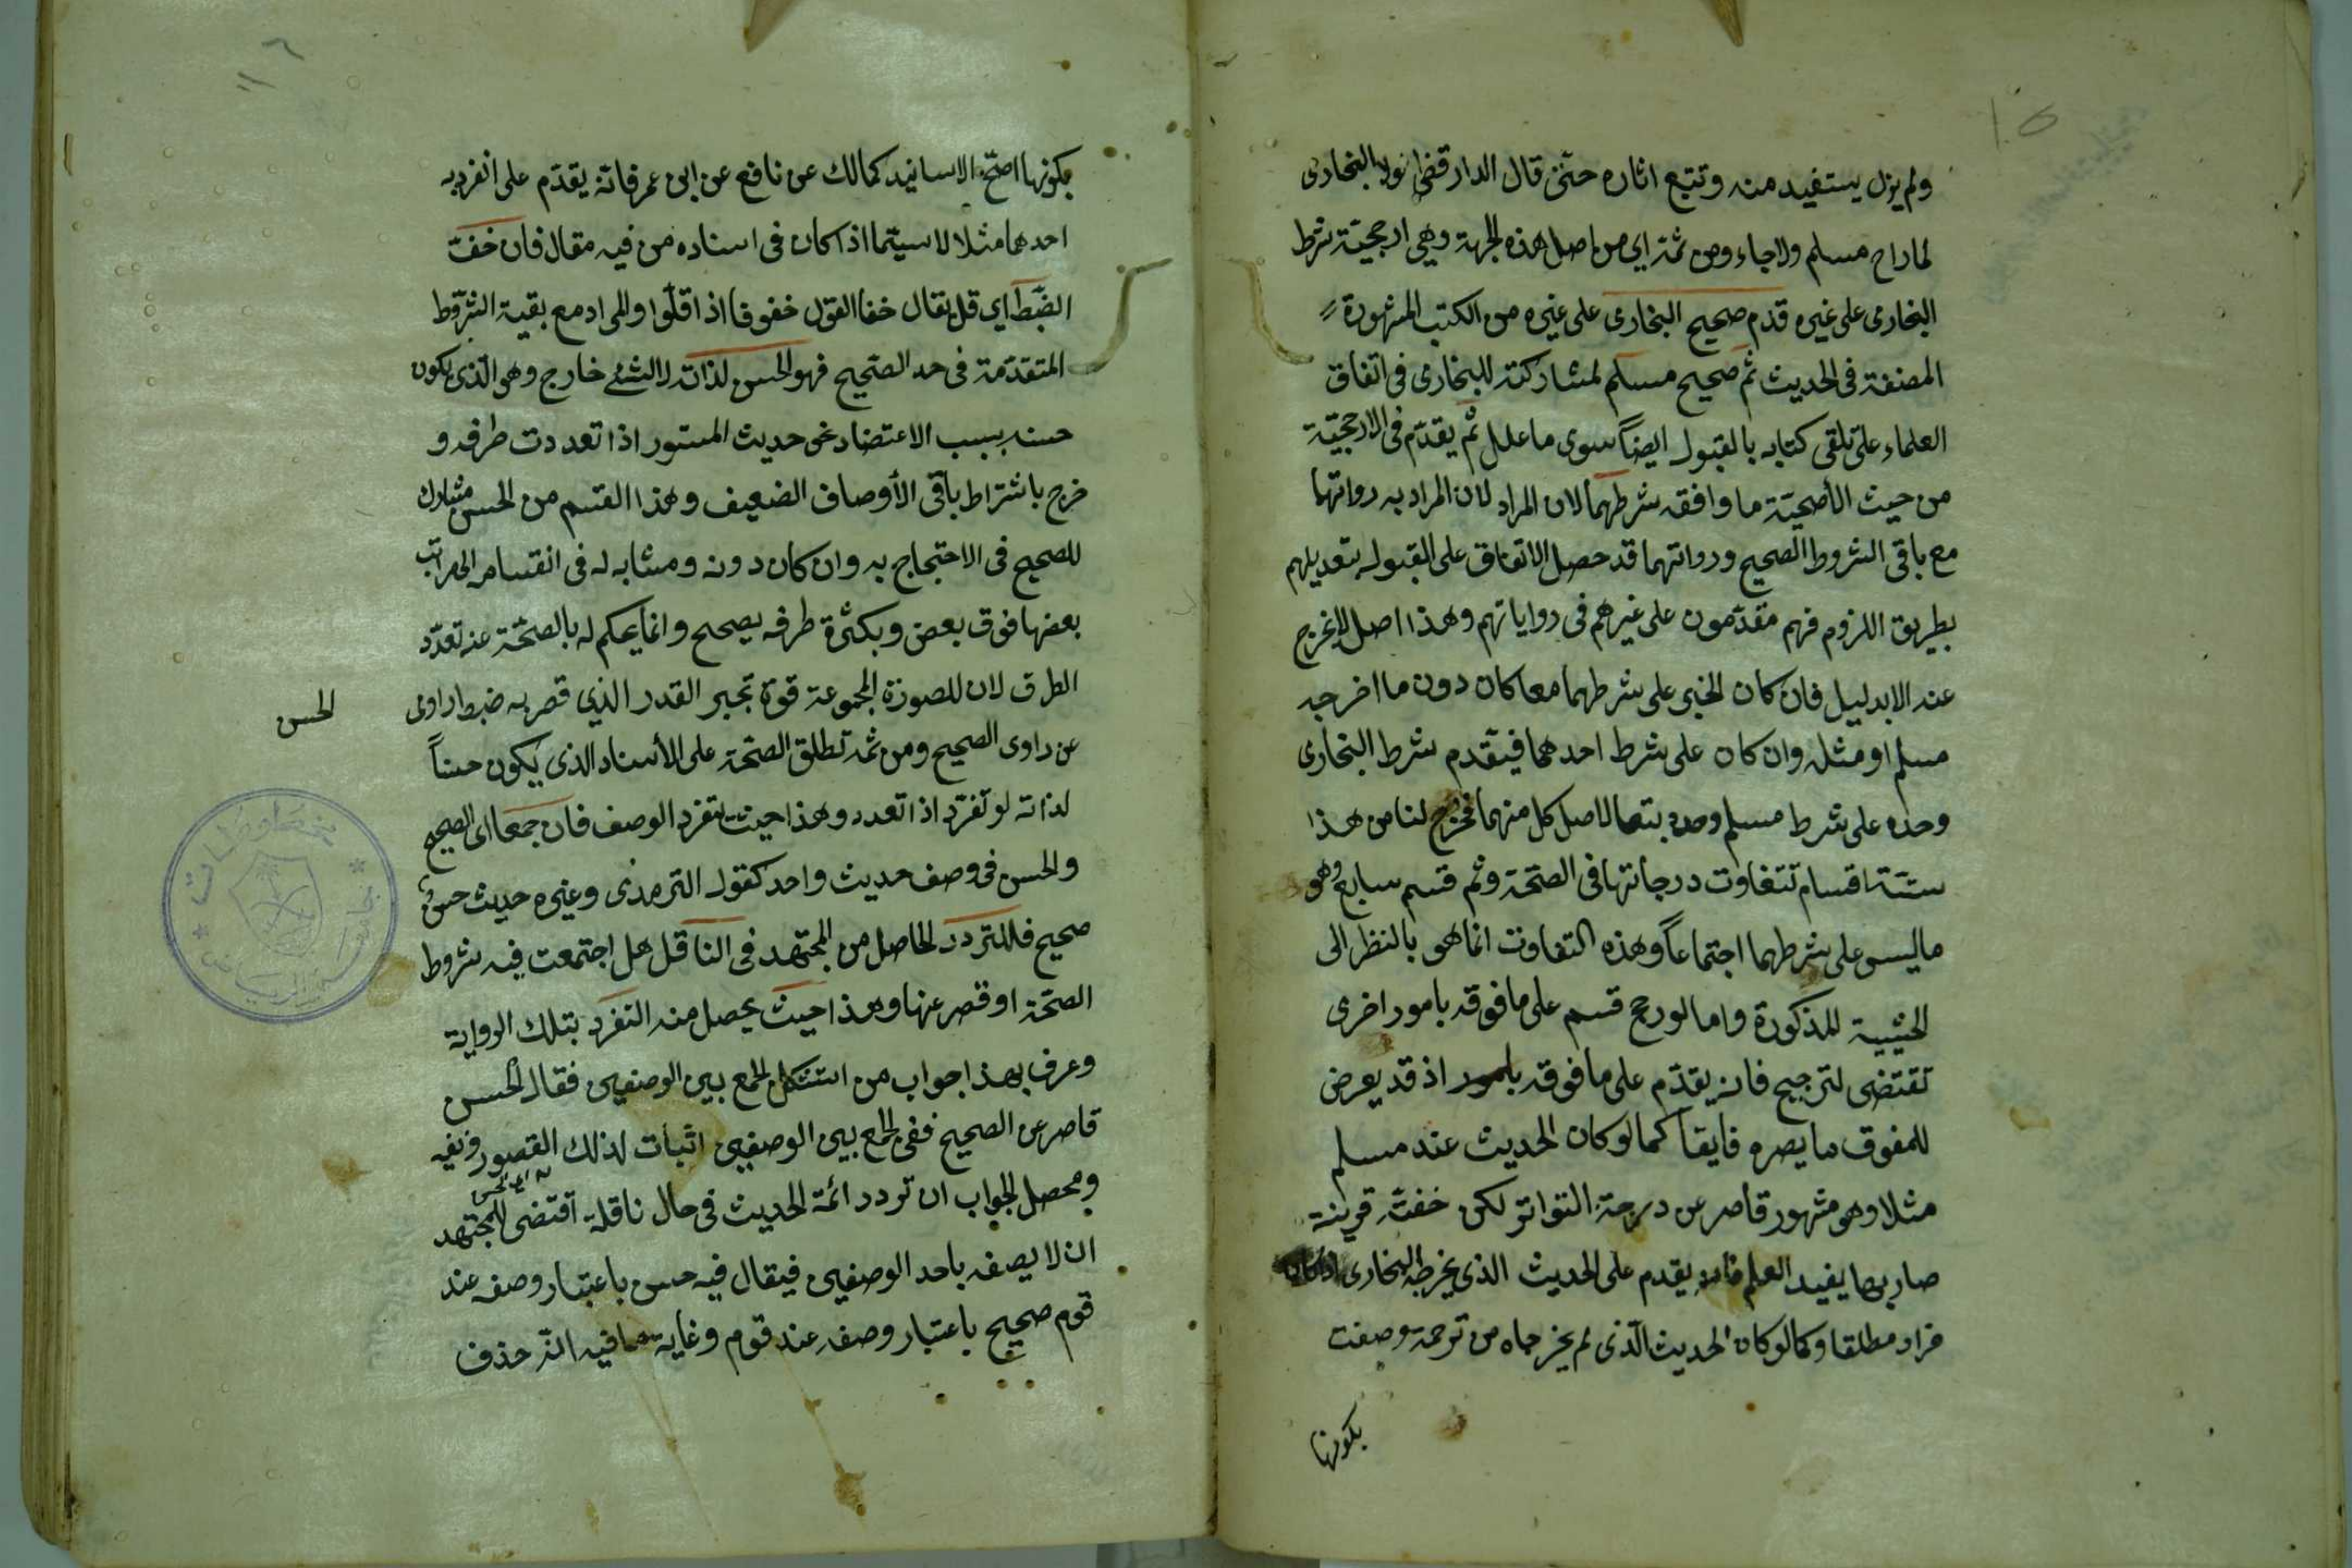 ولم يزل يستفيد منه وتتبع اثاره حتى قال الدارقطني لولا البخارى
لما راح مسلم ولا جاء ومن ثمة اي من اصل هذه الجهة وهي ارجحية شرط
البخارى على غيره قدم صحيح البخارى على غيره من الكتب المشهورة
المصنفة فى الحديث ثم صحيح مسلم لمشاركته للبخارى فى اتفاق
العلماء على تلقى كتابه بالقبول ايضاً سوى ما علل ثم يقدّم فى الارجحيّة
من حيث الأصحيّة ما وافقه شرطهما لان المراد لان المراد به رواتهما
مع باقى الشروط الصحيح ورواتهما قد حصل الاتفاق على القبول بتعديلهم
بطريق اللزوم فهم مقدّمون على غيرهم فى رواياتهم وهذا اصل لا يخرج
عنه الا بدليل فان كان الخبر على شرطهما معا كان دون ما اخرجه
مسلم او مثله وان كان على شرط احدهما فيقدم شرط البخارى
وحده على شرط مسلم وحده تبعا لاصل كل منهما فخرج لنا من هذا
ستّة اقسام تتفاوت درجاتها فى الصحّة وثم قسم سابع وهو
ما ليس على شرطهما اجتماعاً وهذه التفاوت انما هو بالنظر الى
الحيثية المذكورة واما لو رجح قسم على ما فوقه بامور اخرى
تقتضى لترجيح فانه يقدّم على ما فوقه بامور اذ قد يعرض
للمفوق ما يصره فايقا كما لو كان الحديث عند مسلم
مثلا وهو مشهور قاصر عن درجة التواتر لكن خفت قرينة
صار بها يفيد العلم فانه يقدم على الحديث الذى يخرجه البخارى اذا كان
فراد مطلقا وكما لو كان الحديث الّذى لم يخرجاه من ترجمة وصفت
بكونها
بكونها اصحّ الاسانيد كمالك عن نافع عن ابن عمر فانه يقدّم على انفرد به
احدهما مثلا لا سيّما اذا كان فى اسناده من فيه مقال فان خفّ
الضّبط اي قل يقال خفا القول خفوفا اذا قلّوا والمراد مع بقية الشّروط
المتقدّمة فى حد الصّحيح فهو الحسن لذاته لا لشئ خارج وهو الّذى يكون
حسنه بسبب الاعتضاد نحو حديث المستور اذا تعددت طرقه و
خرج باشتراط باقى الأوصاف الضعيف وهذا القسم من الحسن مشارك
للصحيح فى الاحتجاج به وان كان دونه ومشابه له فى انقسامه الى مراتب
بعضها فوق بعض وبكثرة طرقه يصحح وانما يحكم له بالصحّة عند تعدّد
الطرق لان للصورة المجموعة قوة تجبر القدر الذي قصر به ضبط راوى
الحسن
عن راوى الصحيح ومن ثمة تطلق الصحّة على الأسناد الذى يكون حسناً
لذاته لو تفرّد اذا تعدد وهذا حيث تنفرد الوصف فان جمعا اى الصحيح
والحسن فى وصف حديث واحد كقول الترمذى وغيره حديث حسن
صحيح فللتردد الحاصل من المجتهد فى الناقل هل اجتمعت فيه شروط
الصحّة او قصر عنها وهذا حيث يحصل منه التفرد بتلك الرواية
وعرف بهذا جواب من استشكل الجمع بين الوصفين فقال الحسن
قاصر عن الصحيح ففى الجمع بين الوصفين اثبات لذلك القصور ونفيه
ومحصل الجواب ان تردد ائمة الحديث فى حال ناقله اقتضى للمجتهد
ان لا يصفه باحد الوصفين فيقال فيه حسن باعتبار وصفه عند
قوم صحيح باعتبار وصفه عند قوم وغاية ما فيه انّه حذف